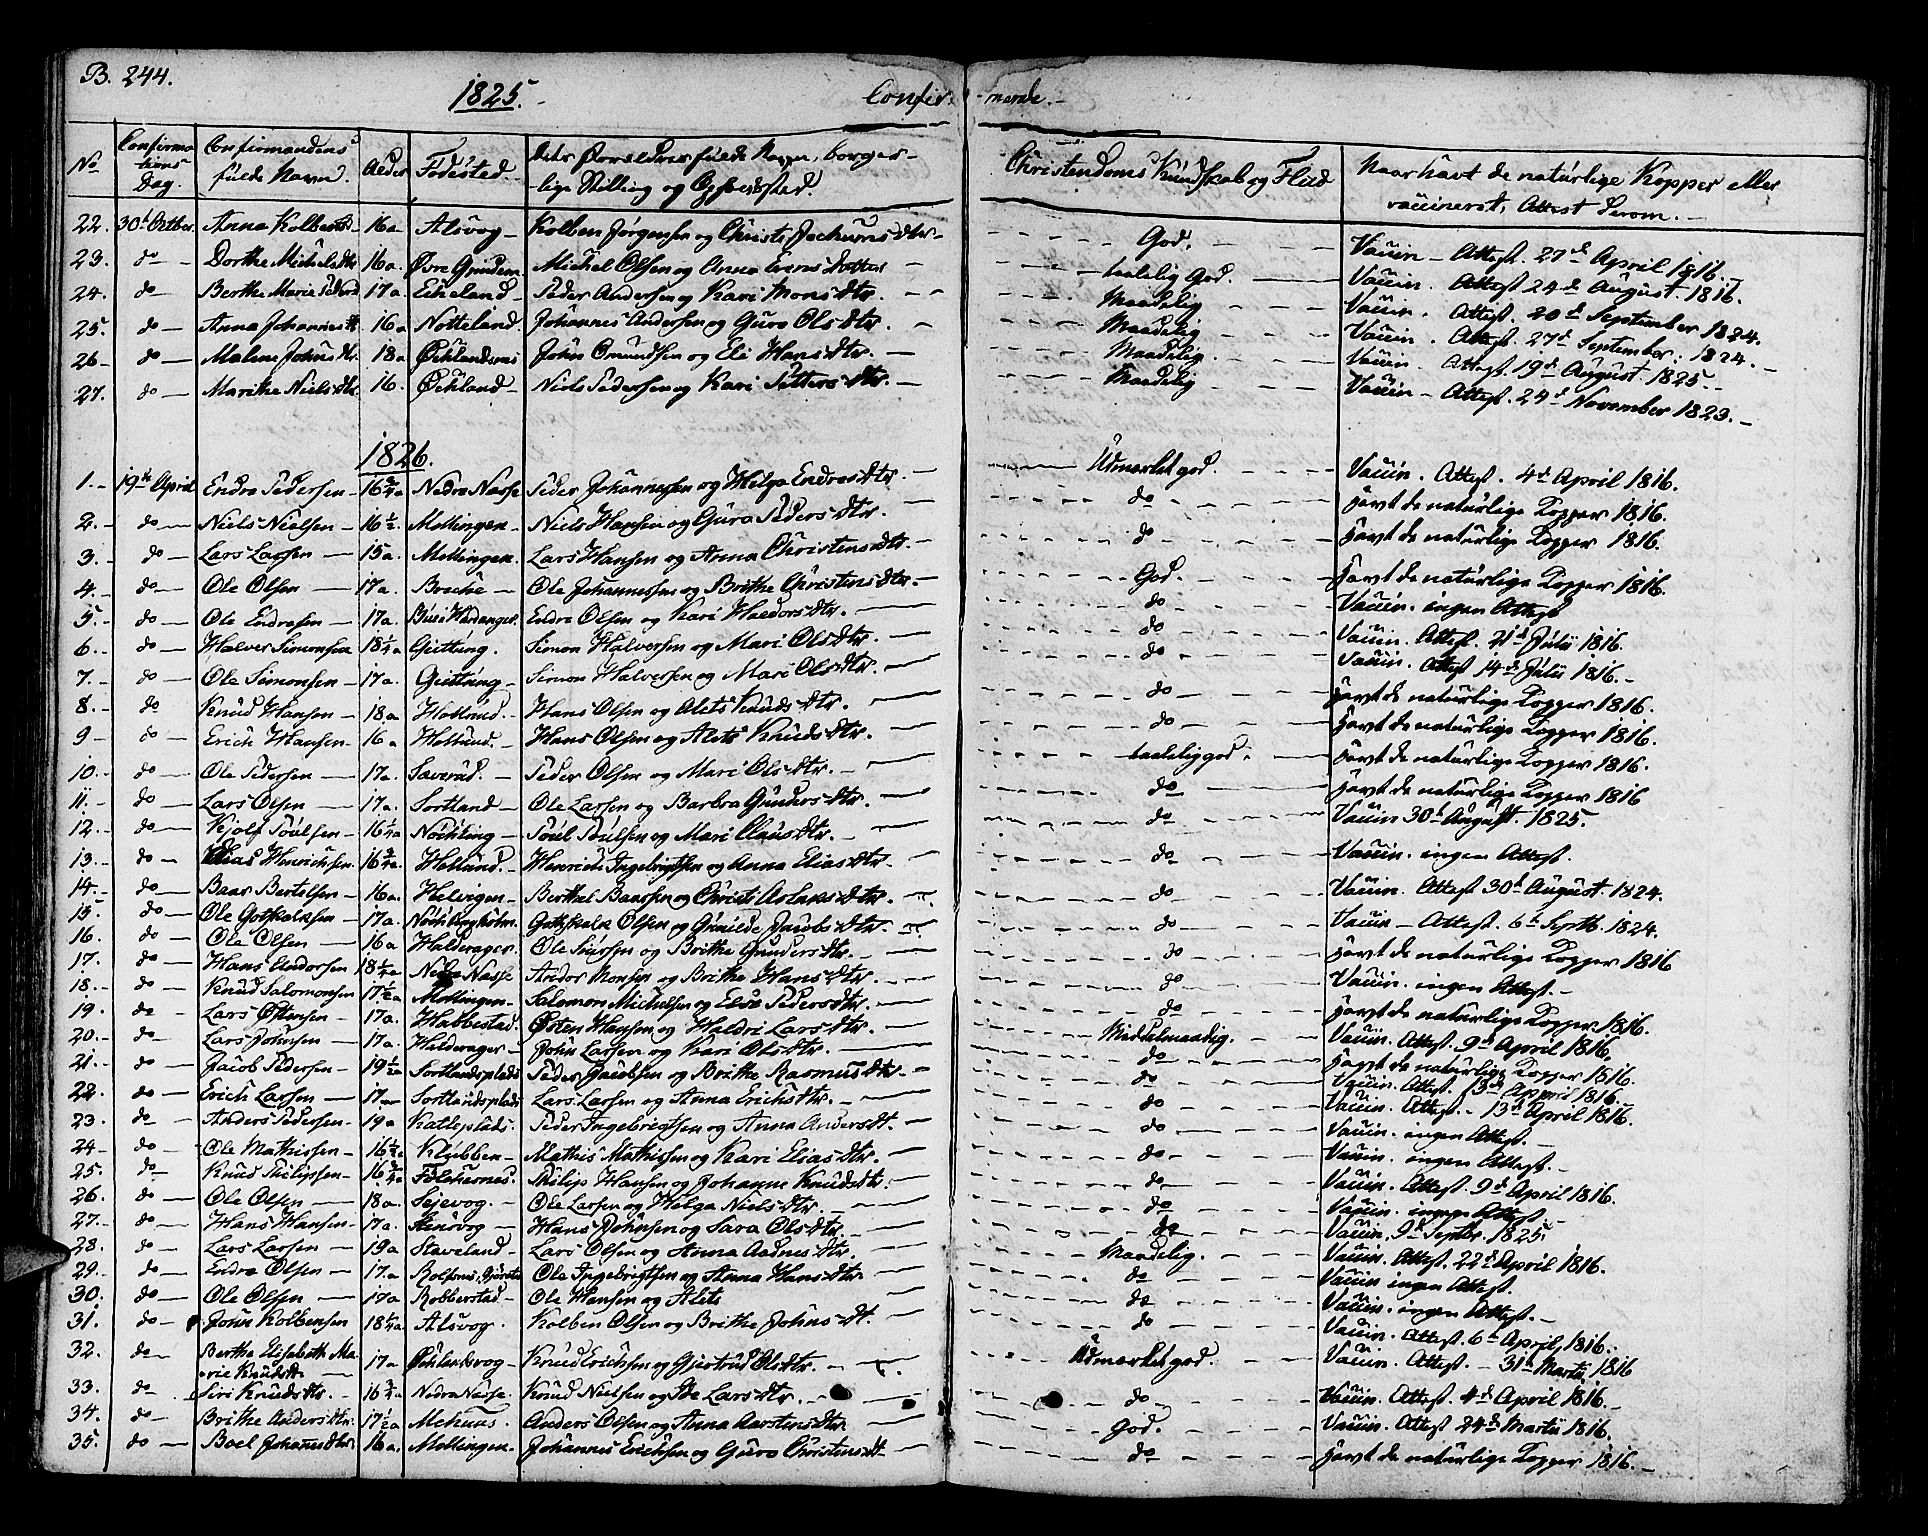 B. 244.
1825.
Confir-
-merede.
No
Confirma-
tions
Dag.
Confirmandens
fulde Navn.
Alder
Födested.
Deres Forældres fulde Navn, borger-
-lige Stilling og Opholdsted.
Christendoms Kundskab og Flid
Naar havt de naturlige Kopper eller
vaccineret, Attest derom.
22. 30d Octber. Anna Kolbensd. 16a Alsvog Kolben Jörgensen og Christi Jochums dtr. God. Vaccin. Attest. 27d April 1816.
23. do Dorthe Michelsdtr 16a. Øvre Grindem Michel Olsen og Anna Evens dotter taalelig God. Vaccin. Attest 24d August. 1816.
24. do Berthe Marie Pedersd 17a. Eikeland Peder Andersen og Kari Mons dtr. Maadelig Vaccin. Attest. 20d September 1824.
25. do Anna Johannesdtr. 16a Notteland. Johannes Andersen og Guro Ols dtr. Maadelig Vaccin. Attest. 27d September. 1824.
26 do Malene Johns dtr. 18a Øchlandsnes John Omundsen og Eli Hans dtr. Maadelig. Vaccin. Attest. 19d August. 1825.
27. do Marithe Niels dtr. 16. Øchland Niels Pedersen og Kari Petters dtr. Maadelig Vaccin Attest. 24d November 1823.
1826.
1. 19d April Endre Pedersen 16 3/4a Nedre Nasse Peder Johannessen og Helga Endres dtr. Udmærket god. Vaccin. Attest. 4d April 1816.
2. do Niels Nielsen 16 1/2 Mollingen Niels Hansen og Guro Peders dtr. do havt de naturlige Kopper 1816.
3. do Lars Larsen 15a. Mollingen. Lars Hansen og Anna Christens dtr. do havt de naturlige Kopper 1816.
4. do Ole Olsen 17a. Broche Ole Johannessen og Brithe Christens dtr. God. havt de naturlige Kopper 1816.
5. do Ole Endresen 17a. Bue i Hardanger. Endre Olsen og Kari Haldors dtr. do Vaccin. ingen Attest
6. do Halver Simonsen 18 1/4a Geittung. Simon Halversen og Mari Ols dtr. do Vaccin. Attest. 21d Julii 1816.
7. do Ole Simonsen 17a. Geittung Simon Halversen og Mari Ols dtr. do Vaccin. Attest 14d Julii 1816.
8. do Knud Hansen 18a Hollund. Hans Olsen og Alets Knuds dtr. do havt de naturlige Kopper 1816.
9 do Erich Hansen 16a Hollund. Hans Olsen og Alets Knuds dtr. do havt de naturlige Kopper 1816.
10. do Ole Pedersen 17a. Saverud. Peder Olsen og Mari Ols dtr. taalelig god. havt de naturlige Kopper 1816.
11. do Lars Olsen 17a. Sortland Ole Larsen og Barbro Gunders dtr. do havt de naturlige Kopper 1816
12. do Kjolf Poulsen 16 1/4a Nöchling Poul Poulsen og Mari Claus dtr. do Vaccin 30d August. 1825.
13. do Elias Henrichsen 16 3/4a. Hollund. Henrich Ingebrigtsen og Anna Elias dtr. do Vaccin. ingen Attest.
14. do Baar Bertelsen 16a. Helvigen Berthel Baarsen og Christi Aslaks dtr. do Vaccin. Attest. 30d August. 1824.
15. do Ole Gotskalksen 17a. Gotskalk Olsen og Gunilde Jacobs dtr. do Vaccin Attest. 6d Septb. 1824.
16. do Ole Olsen 16a Haldorager. Ole Siursen og Brithe Gunders dtr. do havt de naturlige Kopper 1816
17. do Hans Andorsen 18 1/4a Nedre Nasse Andor Monsen og Brithe Hans dtr. do Vaccin. ingen Attest.
18. do Knud Salomonsen 17 1/2a Mollingen Salomon Michelsen og Else Peders dtr. do havt de naturlige Kopper 1816.
19. do Lars Østensen 17a. Habbestad. Østen Hansen og Haldri Lars dtr. Middelmaadig. Vaccin. Attest. 9d April 1816.
20. do Lars Johnsen 17a. Haldorager John Larsen og Kari Ols dtr. do havt de naturlige Kopper 1816.
21. do Jacob Pedersen 19 1/2a Sortlandsplads Peder Jacobsen og Brithe Rasmus dtr. do Vaccin. Attest. 13de April 1816.
22. do Erich Larsen 17a Sortlandsplads Lars Larsen og Anna Erichs dtr. do Vaccin. Attest. 13d April 1816.
23. do Anders Pedersen 19a Katleplads. Peder Ingebrigtsen og Anna Anders dt. do Vaccin. ingen Attest.
24 do Ole Mathissen 16 1/2a Klubben Mathis Mathissen og Kari Elias dtr. do Vaccin. ingen Attest.
25. do Knud Philipsen 16 3/4a Folchernes. Philip Hansen og Johanne Knuds dtr. do Vaccin. Attest. 9d April 1816.
26. do Ole Olsen 18a. Seievog. Ole Larsen og Helga Niels dtr. do Vaccin. ingen Attest.
27. do Hans Hansen 17a. Stensvog Hans Johnsen og Sara Ols dtr. do Vaccin. 9d Septbr. 1825.
28. do Lars Larsen 19a Staveland. Lars Olsen og Anna Aadnes dtr. Maadelig. Vaccin. Attest. 22d April 1816.
29. do Endre Olsen 17a Ole Ingebrigtsen og Anna Hans dtr. do Vaccin ingen Attest.
30. do Ole Olsen 17a Robberstad. Ole Hansen og Alets do Vaccin. ingen Attest.
31. do John Kolbensen 18 1/4a. Alsvog. Kolben Olsen og Brithe Johns dt. do Vaccin. Attest. 6d April, 1816.
32. do Berthe Elisabeth Ma- 17a Øchlandsvog Knud Erichsen og Gjertrud Ols dtr. Udmærket god. Vaccin. Attest. 31d Martii 1816
-rie Knudsdtr.
33. do Siri Knuds dtr. 16 3/4a Nedre Nasse. Knud Nielsen og Ide Lars dtr. do Vaccin. Attest. 4d April 1816.
34. do Brithe Anders dtr. 17 1/2a Mehuus. Anders Olsen og Anna Aarstens dtr. God. Vaccin. Attest. 24d Martii 1816.
35. do Boel Johannesdtr. 16a. Mollingen Johannes Erichsen og Guro Christens dt. do havt de naturlige Kopper 1816.